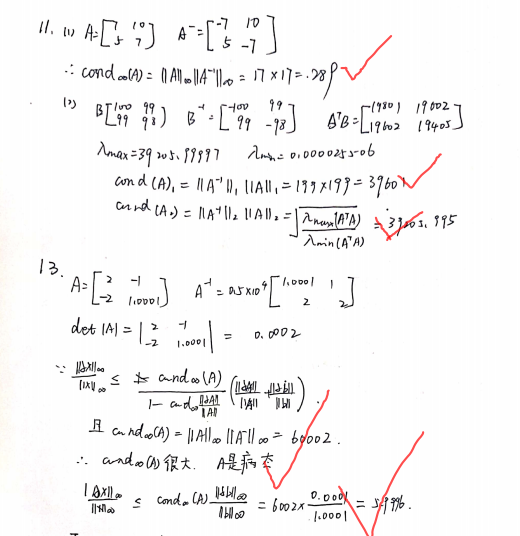 11. (1) A=[7 10 5 7] A⁻¹=[-7 10 5 -7]
∴ cond∞(A) = ||A||∞ ||A⁻¹||∞ = 17×17 = 289
(2) B[100 99 99 98] B⁻¹=[-100 99 99 -98] BᵀB=[19801 19602 19602 19405]
λmax=39205.99997 λmin=0.000025506
cond(A)₁ = ||A⁻¹||₁ ||A||₁ = 199×199 = 39601
cond(A₂) = ||A⁻¹||₂ ||A||₂ = √(λmax(AᵀA)/λmin(AᵀA)) = 39205.995
13.
A=[2 -1 -2 1.0001] A⁻¹=0.5×10⁴[1.0001 1 2 2]
det|A| = |2 -1 -2 1.0001| = 0.0002
∵ ||δx||∞/||x||∞ ≤ cond∞(A)/(1-cond∞ ||δA||/||A||) (||δA||/||A|| + ||δb||/||b||)
且 cond∞(A) = ||A||∞ ||A⁻¹||∞ = 60002.
∴ cond∞(A) 很大. A是病态
||δx||∞/||x||∞ ≤ cond∞(A) ||δb||∞/||b||∞ = 6002×0.0001/1.0001 = 5.9996.